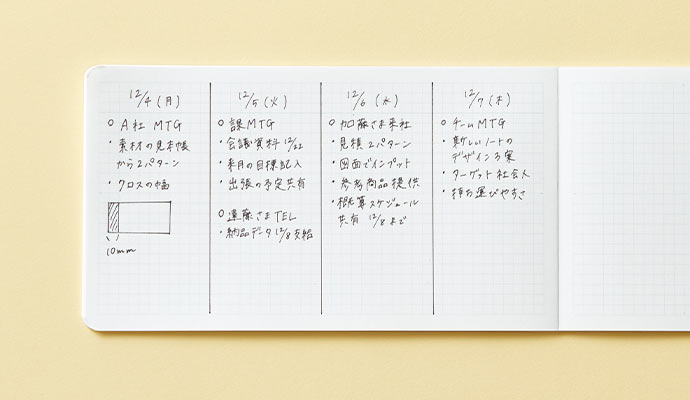 12/4（月）
○ A社 MTG
・素材の見本帳
から2パターン
・クロスの幅
10mm
12/5（火）
○ 課MTG
・会議資料 12/22
・来月の目標記入
・出張の予定共有
○ 遠藤さまTEL
・納品データ 12/8支給
12/6（水）
○ 加藤さま来社
・見積2パターン
・図面でインプット
・参考商品提供
・概算スケジュール
共有 12/8まで
12/7（木）
○ チームMTG
・新しいノートの
デザイン3案
・ターゲット社会人
・持ち運びやすさ